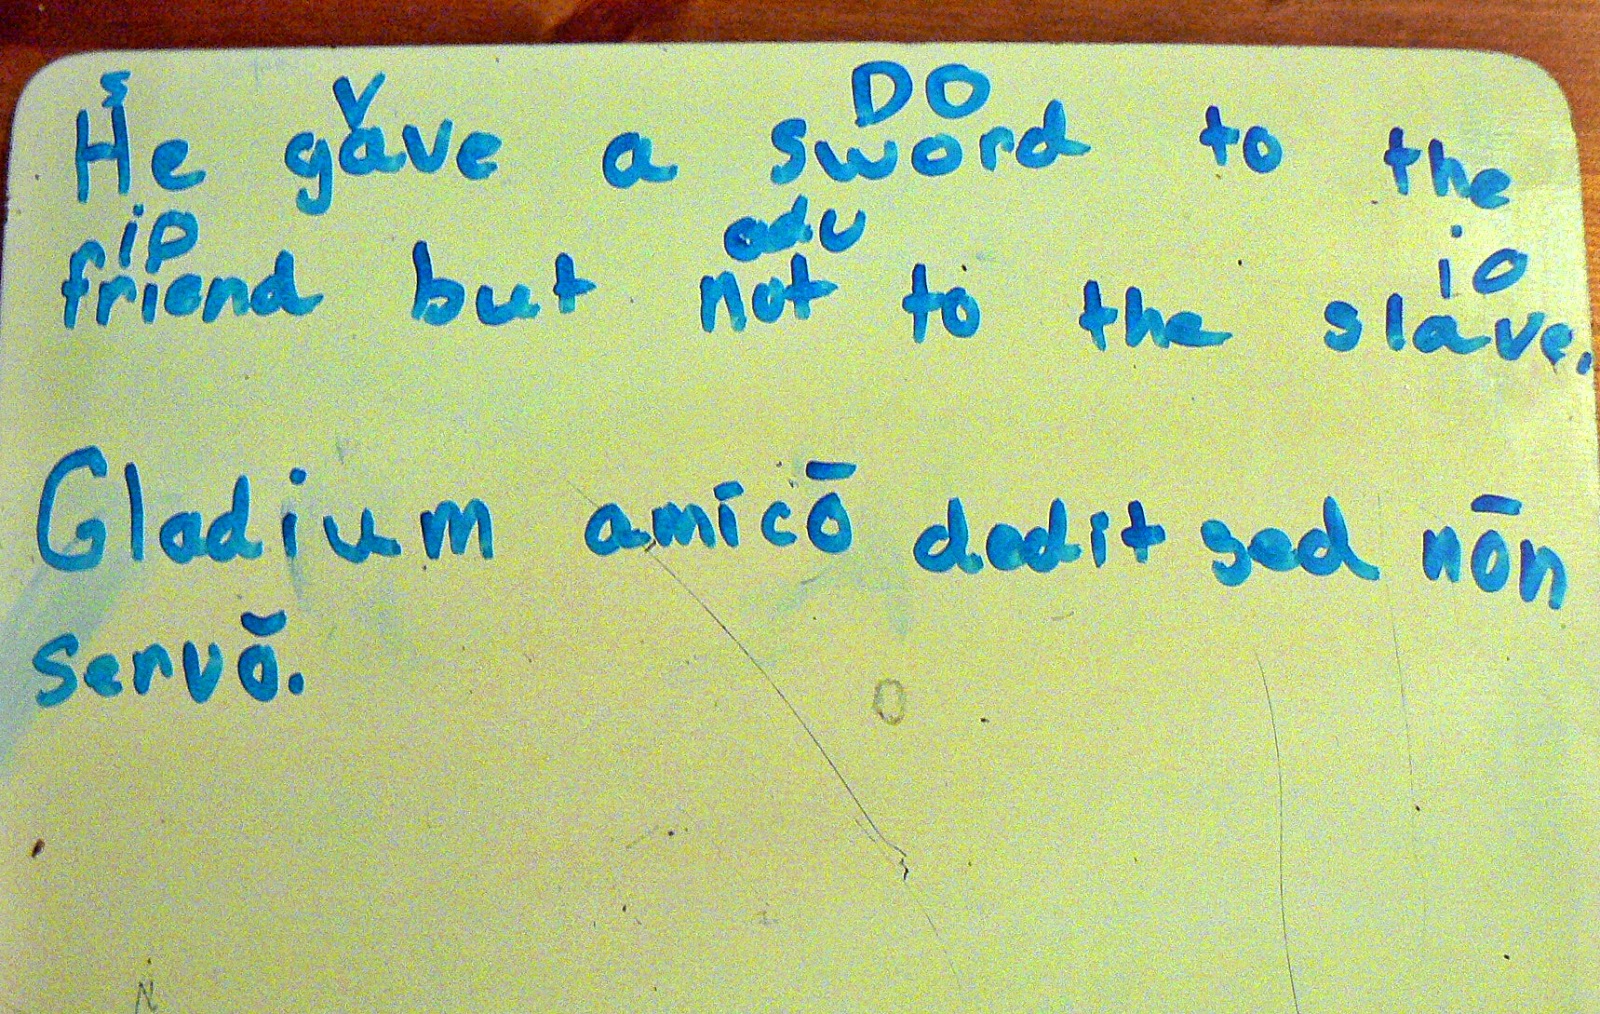 S V DO
He gave a sword to the
io adv io
friend but not to the slave.
Gladium amīcō dedit sed nōn
servŏ.